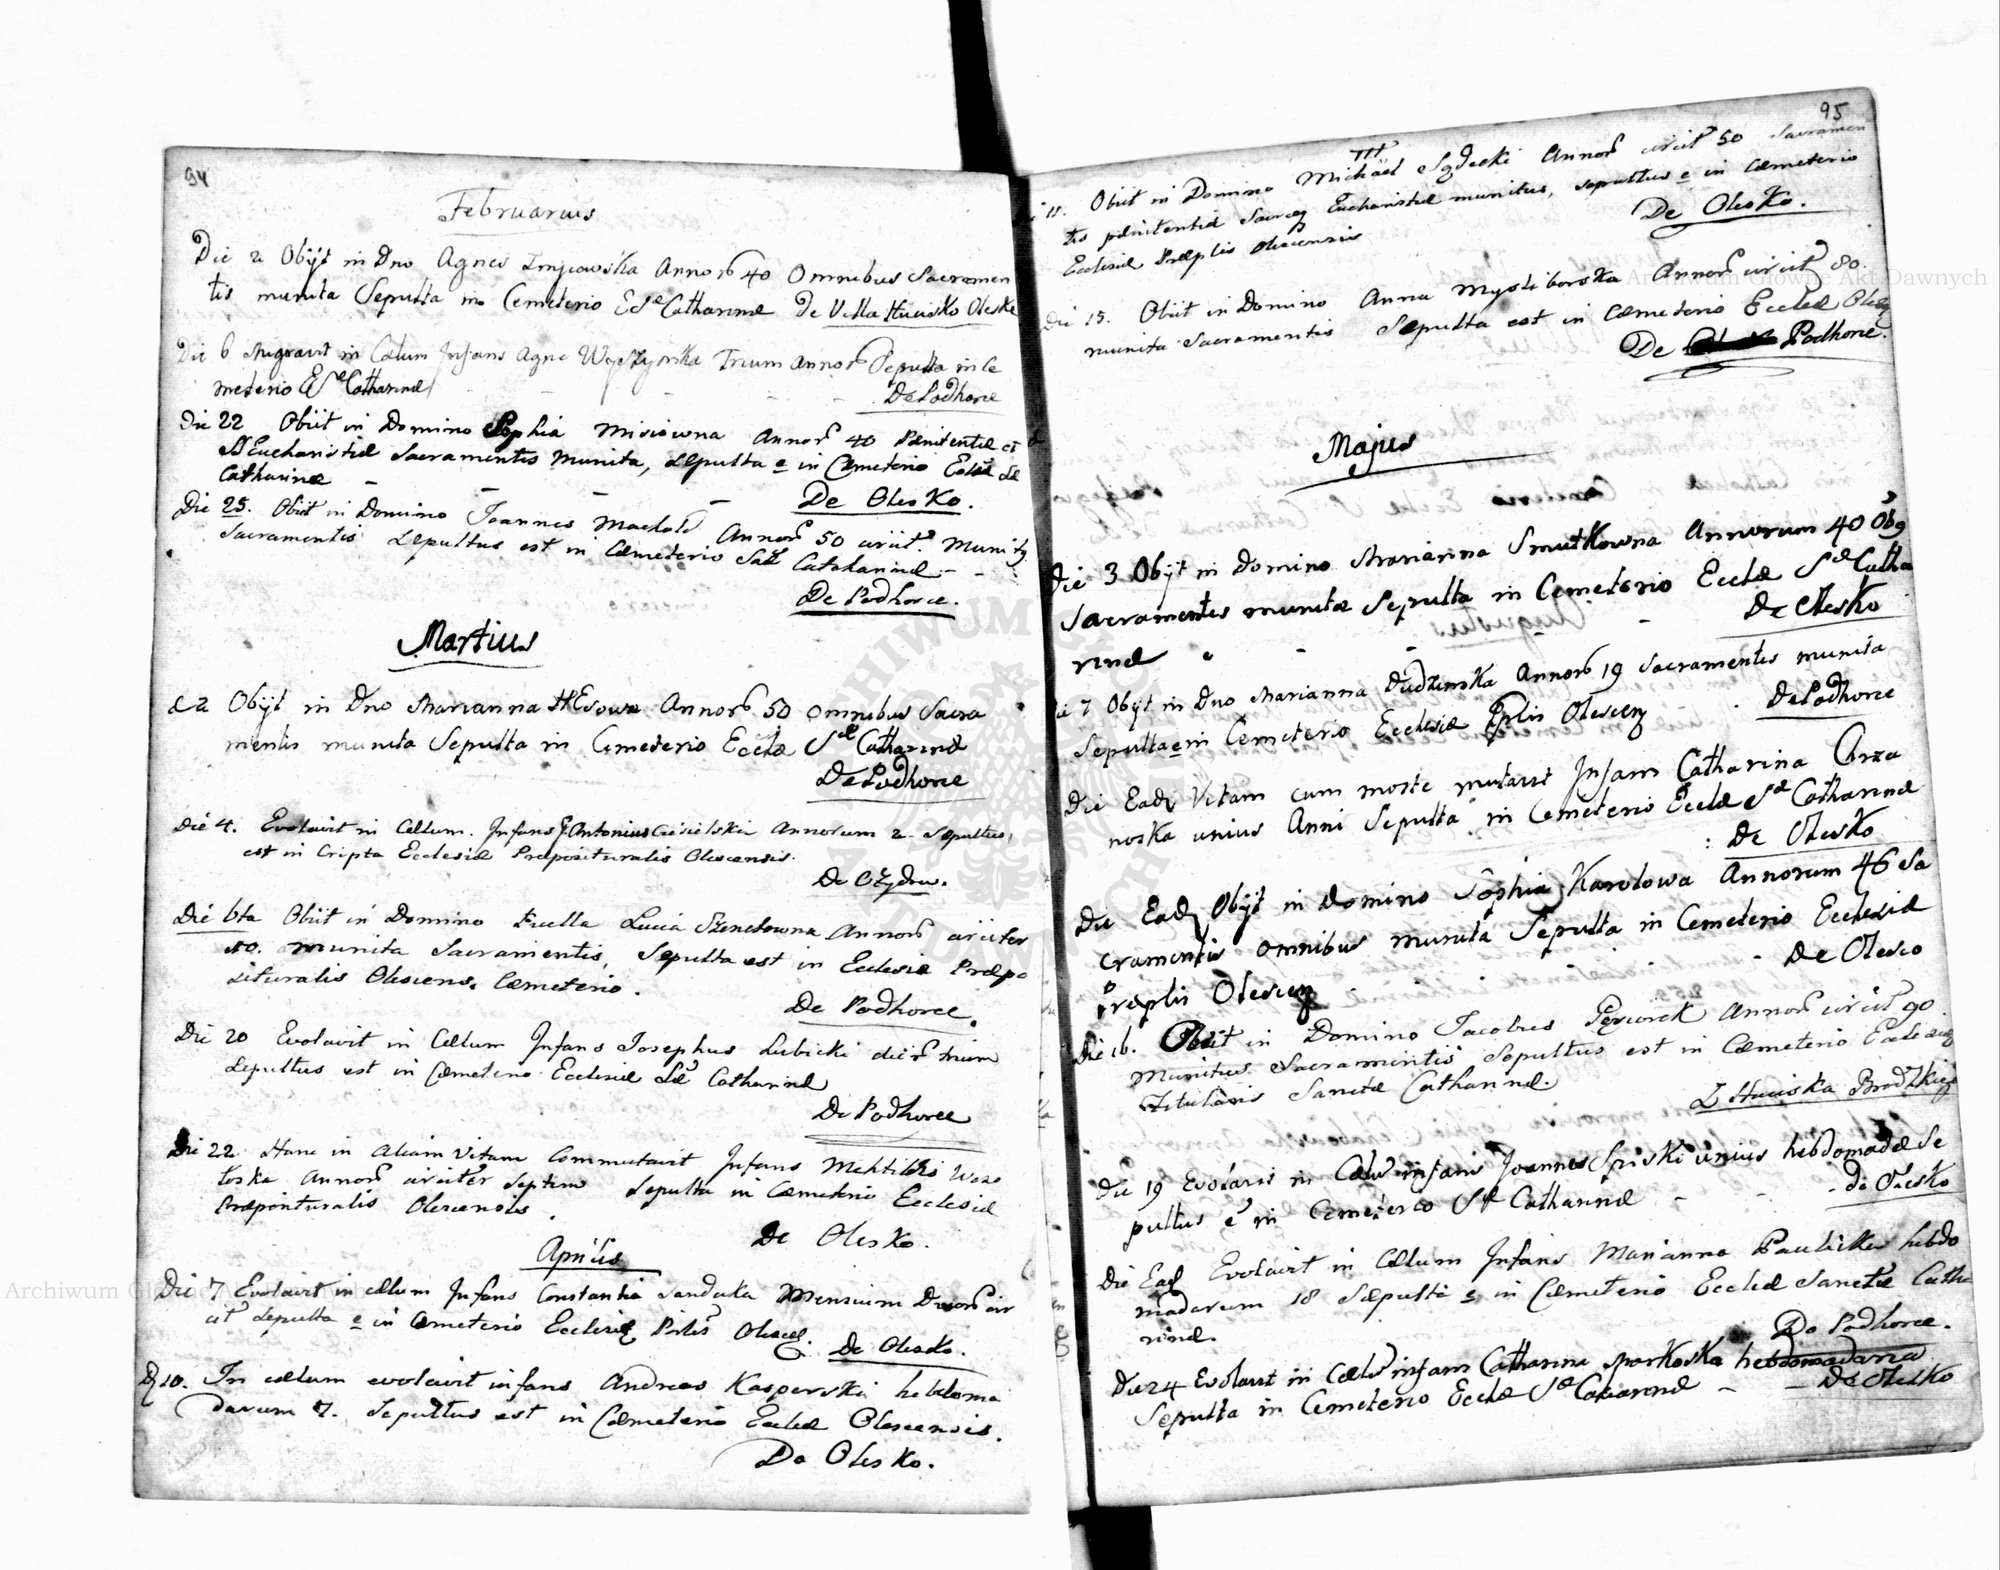 94
Februarius
Die 2 Obijt in Dno Agnes Annorũ 40 Omnibus Sacramen
tis munita Sepulta in Cemeterio Ec Sæ Catharinæ De Villa Huisko Oleske
Die 6 Migravit in Cœlum Infans Agne Trium Annorũ Sepulta in Ce
meterio E Sæ Catharinæ De Podhorce
Die 22 Obiit in Domino Sophia Misiowna Annorũ 40 Pænitentiæ et
SS Eucharistiæ Sacramentis munita, Sepulta e in Cæmeterio Eccliæ Sæ
Catharinæ
De Olesko.
Die 25. Obiit in Domino Joannes Annorũ 50 circit. Munitq
Sacramentis Sepultus est in Cæmeterio Catharinæ
De Podhorce.
Martius
d 2 Obijt in Dno Marianna Annorũ 50 omnibus Sacra
mentis munita Sepulta in Cemeterio Ecclæ Sæ Catharinæ
De Podhorce
Die 4. Evolavit in Cœllum. Infans Antonius Cisielski Annorum 2. Sepultus
est in Cripta Ecclesiæ Præposituralis Olescensis.
De
Die 6ta Obiit in Domino Puella Lucia Annorũ circiter
munita Sacramentis, Sepulta est in Ecclesiæ Præpo
situralis Olescens. Cæmeterio.
De Podhorce.
Die 20 Evolavit in Cœllum Infans Josephus Lubicki dierũ trium
Sepultus est in Cæmeterio Ecclesiæ Sæ Catharinæ
De Podhorce
Die 22. Hanc in Aliam Vitam Commutavit Infans Mehtildis Weso
loska Annorũ circiter Septem Sepulta in Cæmeterio Ecclesiæ
Præposituralis Olescensis.
De Olesko.
Aprilis
Die 7 Evolavit in cœllum Infans Constantia Sanducka Mensium Duorũ cir
cit Sepulta e in Cæmeterio Ecclesiæ
De Olesko.
D 10. In cœlum evolavit infans Andreas Kasperski hebdoma
darum 7. Sepultus est in Cæmeterio Eccliæ Olescensis.
De Olesko.
95
11. Obiit in Domino Michaël Annorũ circit 50 Sacramen
tis pænitentiæ Sacræq Eucharistiæ munitus, sepultus e in Cæmeterio
Ecclesiæ Præplis Olescensis
De Olesko.
Die 15. Obiit in Domino Anna Mysliborska Annorũ circit 80.
munita Sacramentis Sepulta est in Cæmeterio Eccliæ
De Podhorce.
Majus
Die 3 Obijt in Domino Marianna Smutkowna Annorum 40
Sacramentis munita Sepulta in Cemeterio Ecclæ Sæ Catha
rinæ
De Olesko
Die 7 Obijt in Dno Marianna Dudzinska Annorũ 19 Sacramentis munita
Sepulta e in Cemeterio Ecclesiæ Pplis Olescen
De Podhorce
Die Eadē Vitam cum morte mutavit Infans Catharina Chrza
noska unius Anni Sepulta in Cemeterio Ecclæ Sæ Catharinæ
De Olesko
Die Eadē Obijt in Domino Sophia Karolowa Annorum 46 Sa
cramentis omnibus munita Sepulta in Cemeterio Ecclesiæ
Præplis Olescen
De Olesco
Die 16. Obiit in Domino Jacobus Annorũ circit 90.
Munitus Sacramentis Sepultus est in Cæmeterio Ecclesiæ
Titularis Sanctæ Catharinæ.
Z Huciska Brodzkiego
Die 19 Evolavit in Cœlū infans Joannes Spiski unius hebdomadæ Se
pultus ē in Cemeterio Sæ Catharinæ
de Olesko
Die Ead Evolavit in Cœlum Infans Marianna Paulicka hebdo
madarum 18 Sæpulta e in Cæmeterio Eccliæ Sanctæ Catha
rinæ.
De Podhorce.
Die 24 Evolavit in Cœlū infans Catharina Morkoska hebdomadaria
Sepulta in Cemeterio Ecclæ Sæ Catharinæ
De Olesko
Archiwum Główne Akt Dawnych